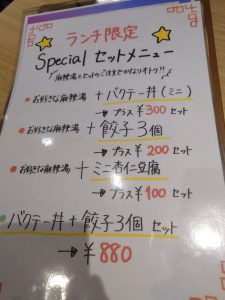 ランチ限定
Special セットメニュー
麻辣湯とセットのご注文でかなりオトク!!
お好きな麻辣湯 + バクテー丼(ミニ)
→ プラス ¥300 セット
お好きな麻辣湯 + 餃子3個
→ プラス ¥200 セット
お好きな麻辣湯 + ミニ杏仁豆腐
→ プラス ¥100 セット
バクテー丼 + 餃子3個 セット
→ ¥880